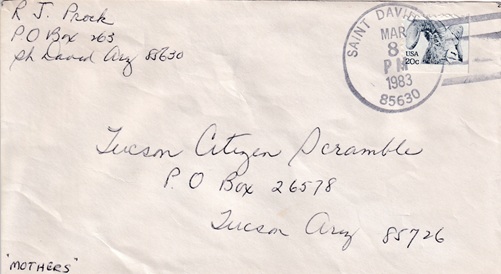 R J Prock
P O Box 263
St David Arz 85630
SAINT DAVID
MAR
8
PM
1983
85630
USA
20c
Tucson Citizen Scramble
P. O Box 26578
Tucson Arz 85726
"MOTHERS"